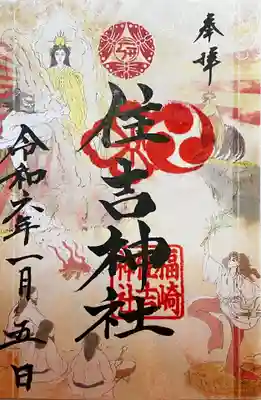 奉拝
住吉神社
福崎
住吉
神社
令和六年一月五日